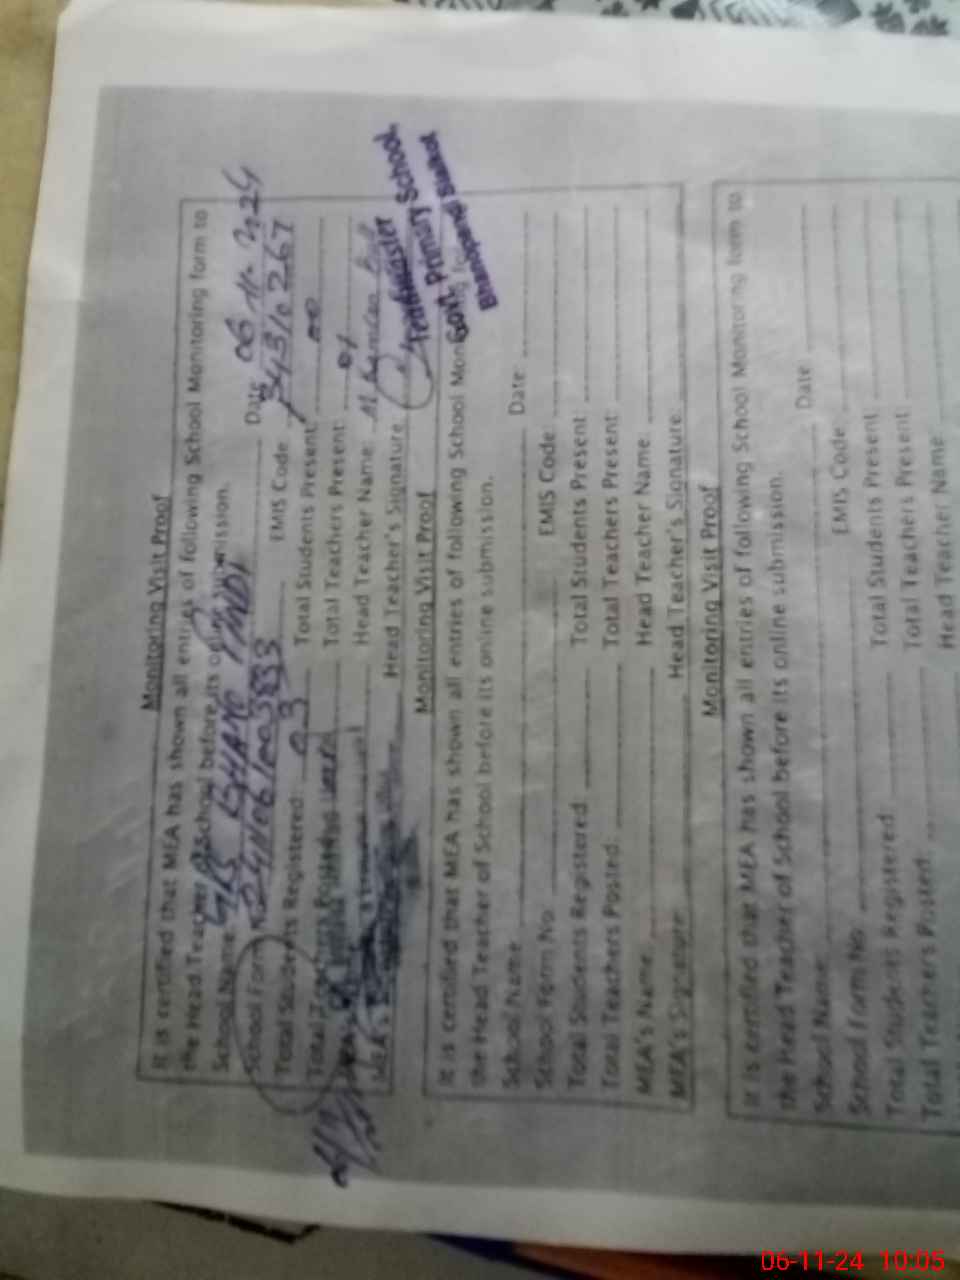 Monitoring Visit Proof
It is certified that MEA has shown all entries of following School Monitoring form to
the Head Teacher of School before its submission.
School Name: GPS BHANO PINDI Date 06-11-2024
School Form 24N061003833 EMIS Code 34310267
Total Students Registered: 03 Total Students Present: 00
Total Teachers Posted Total Teachers Present: 01
Head Teacher Name:
MEA's Head Teacher's Signature
Headmaster
Govt. Primary School
Monitoring Visit Proof
It is certified that MEA has shown all entries of following School
the Head Teacher of School before its online submission.
School Name Date
School Form No EMIS Code
Total Students Registered Total Students Present
Total Teachers Posted: Total Teachers Present
MEA's Name: Head Teacher Name
MEA's Signature: Head Teacher's Signature:
Monitoring Visit Proof
It is certified that MEA has shown all entries of following School Monitoring form to
the Head Teacher of School before its online submission.
School Name: Date
School Form No EMIS Code
Total Students Registered: Total Students Present
Total Teachers Posted: Total Teachers Present
Head Teacher Name
06-11-24 10:05